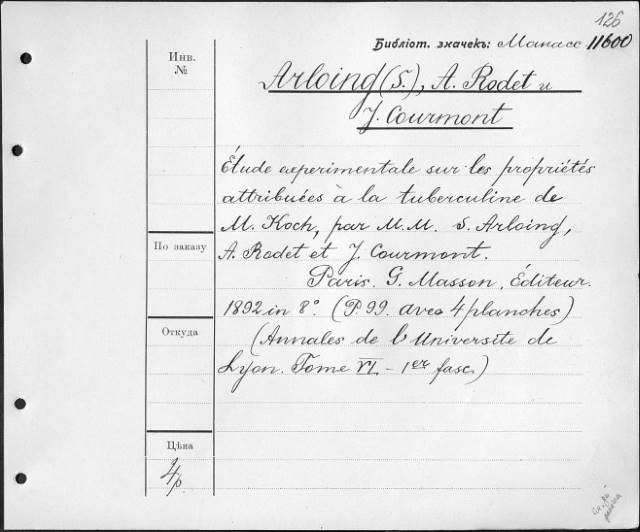 126
Библіот. значекъ: Манасс 11600
Инв.
№
Arloing (S.), A. Rodet и
J. Courmont
Étude experimentale sur les propriétés
attribuées à la tuberculine de
M. Koch, par M.M. S. Arloing,
По заказу
A. Rodet et J. Courmont.
Paris. G. Masson, Éditeur.
1892 in 8°. (P. 99. avec 4 planches)
Откуда
(Annales de l'Universite de
Lyon. Tome VI - 1er fasc.)
Цѣна
4р.